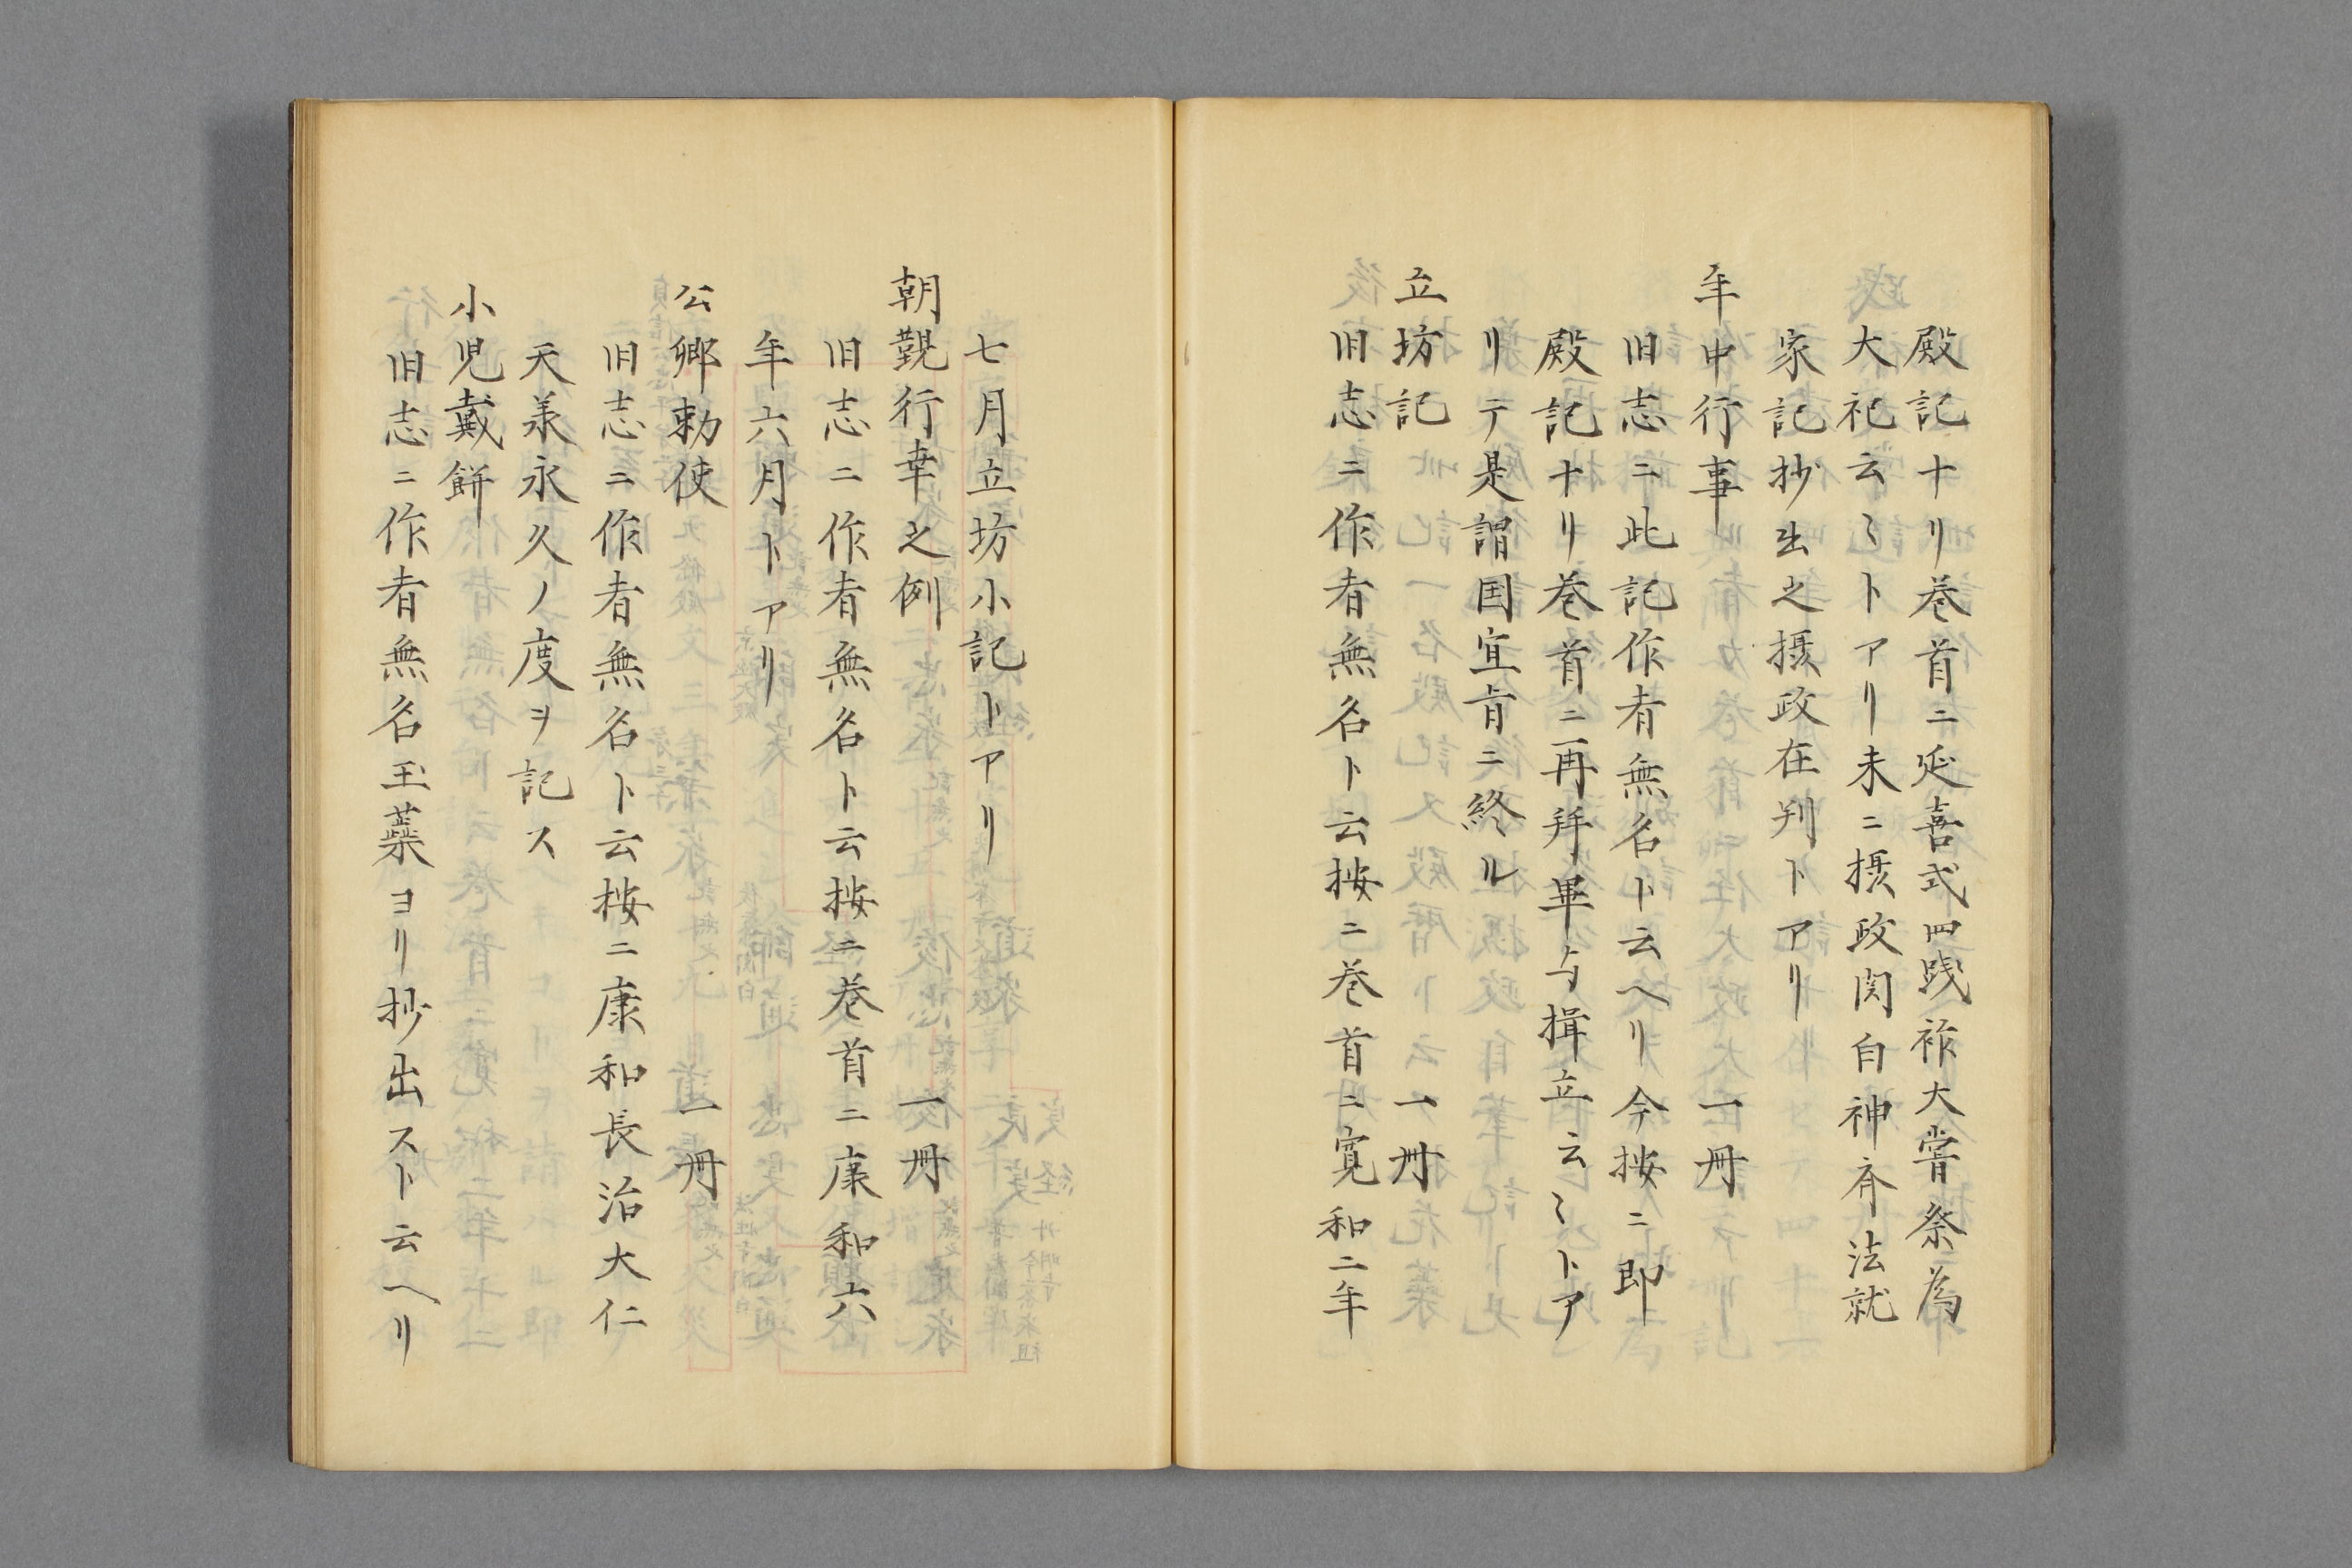 殿記ナリ巻首ニ延喜式四践祚大嘗祭為
大祀云〻トアリ未ニ摂政関白神斉法就
家記抄出之摂政在判トアリ
年中行事 一冊
旧志ニ此記作者無名ト云ヘリ今按ニ即
殿記ナリ巻首ニ再拝畢与揖立云〻トア
リテ是謂国宜肯ニ終ル
立坊記 一冊
旧志ニ作者無名ト云按ニ巻首ニ寛和二年
七月立坊小記トアリ
朝覲行幸之例 一冊
旧志ニ作者無名ト云按ニ巻首ニ康和六
年六月トアリ
公卿勅使 一冊
旧志ニ作者無名ト云按ニ康和長治大仁
天承永久ノ度ヲ記ス
小児戴餅
旧志ニ作者無名玉蘂ヨリ抄出スト云ヘリ